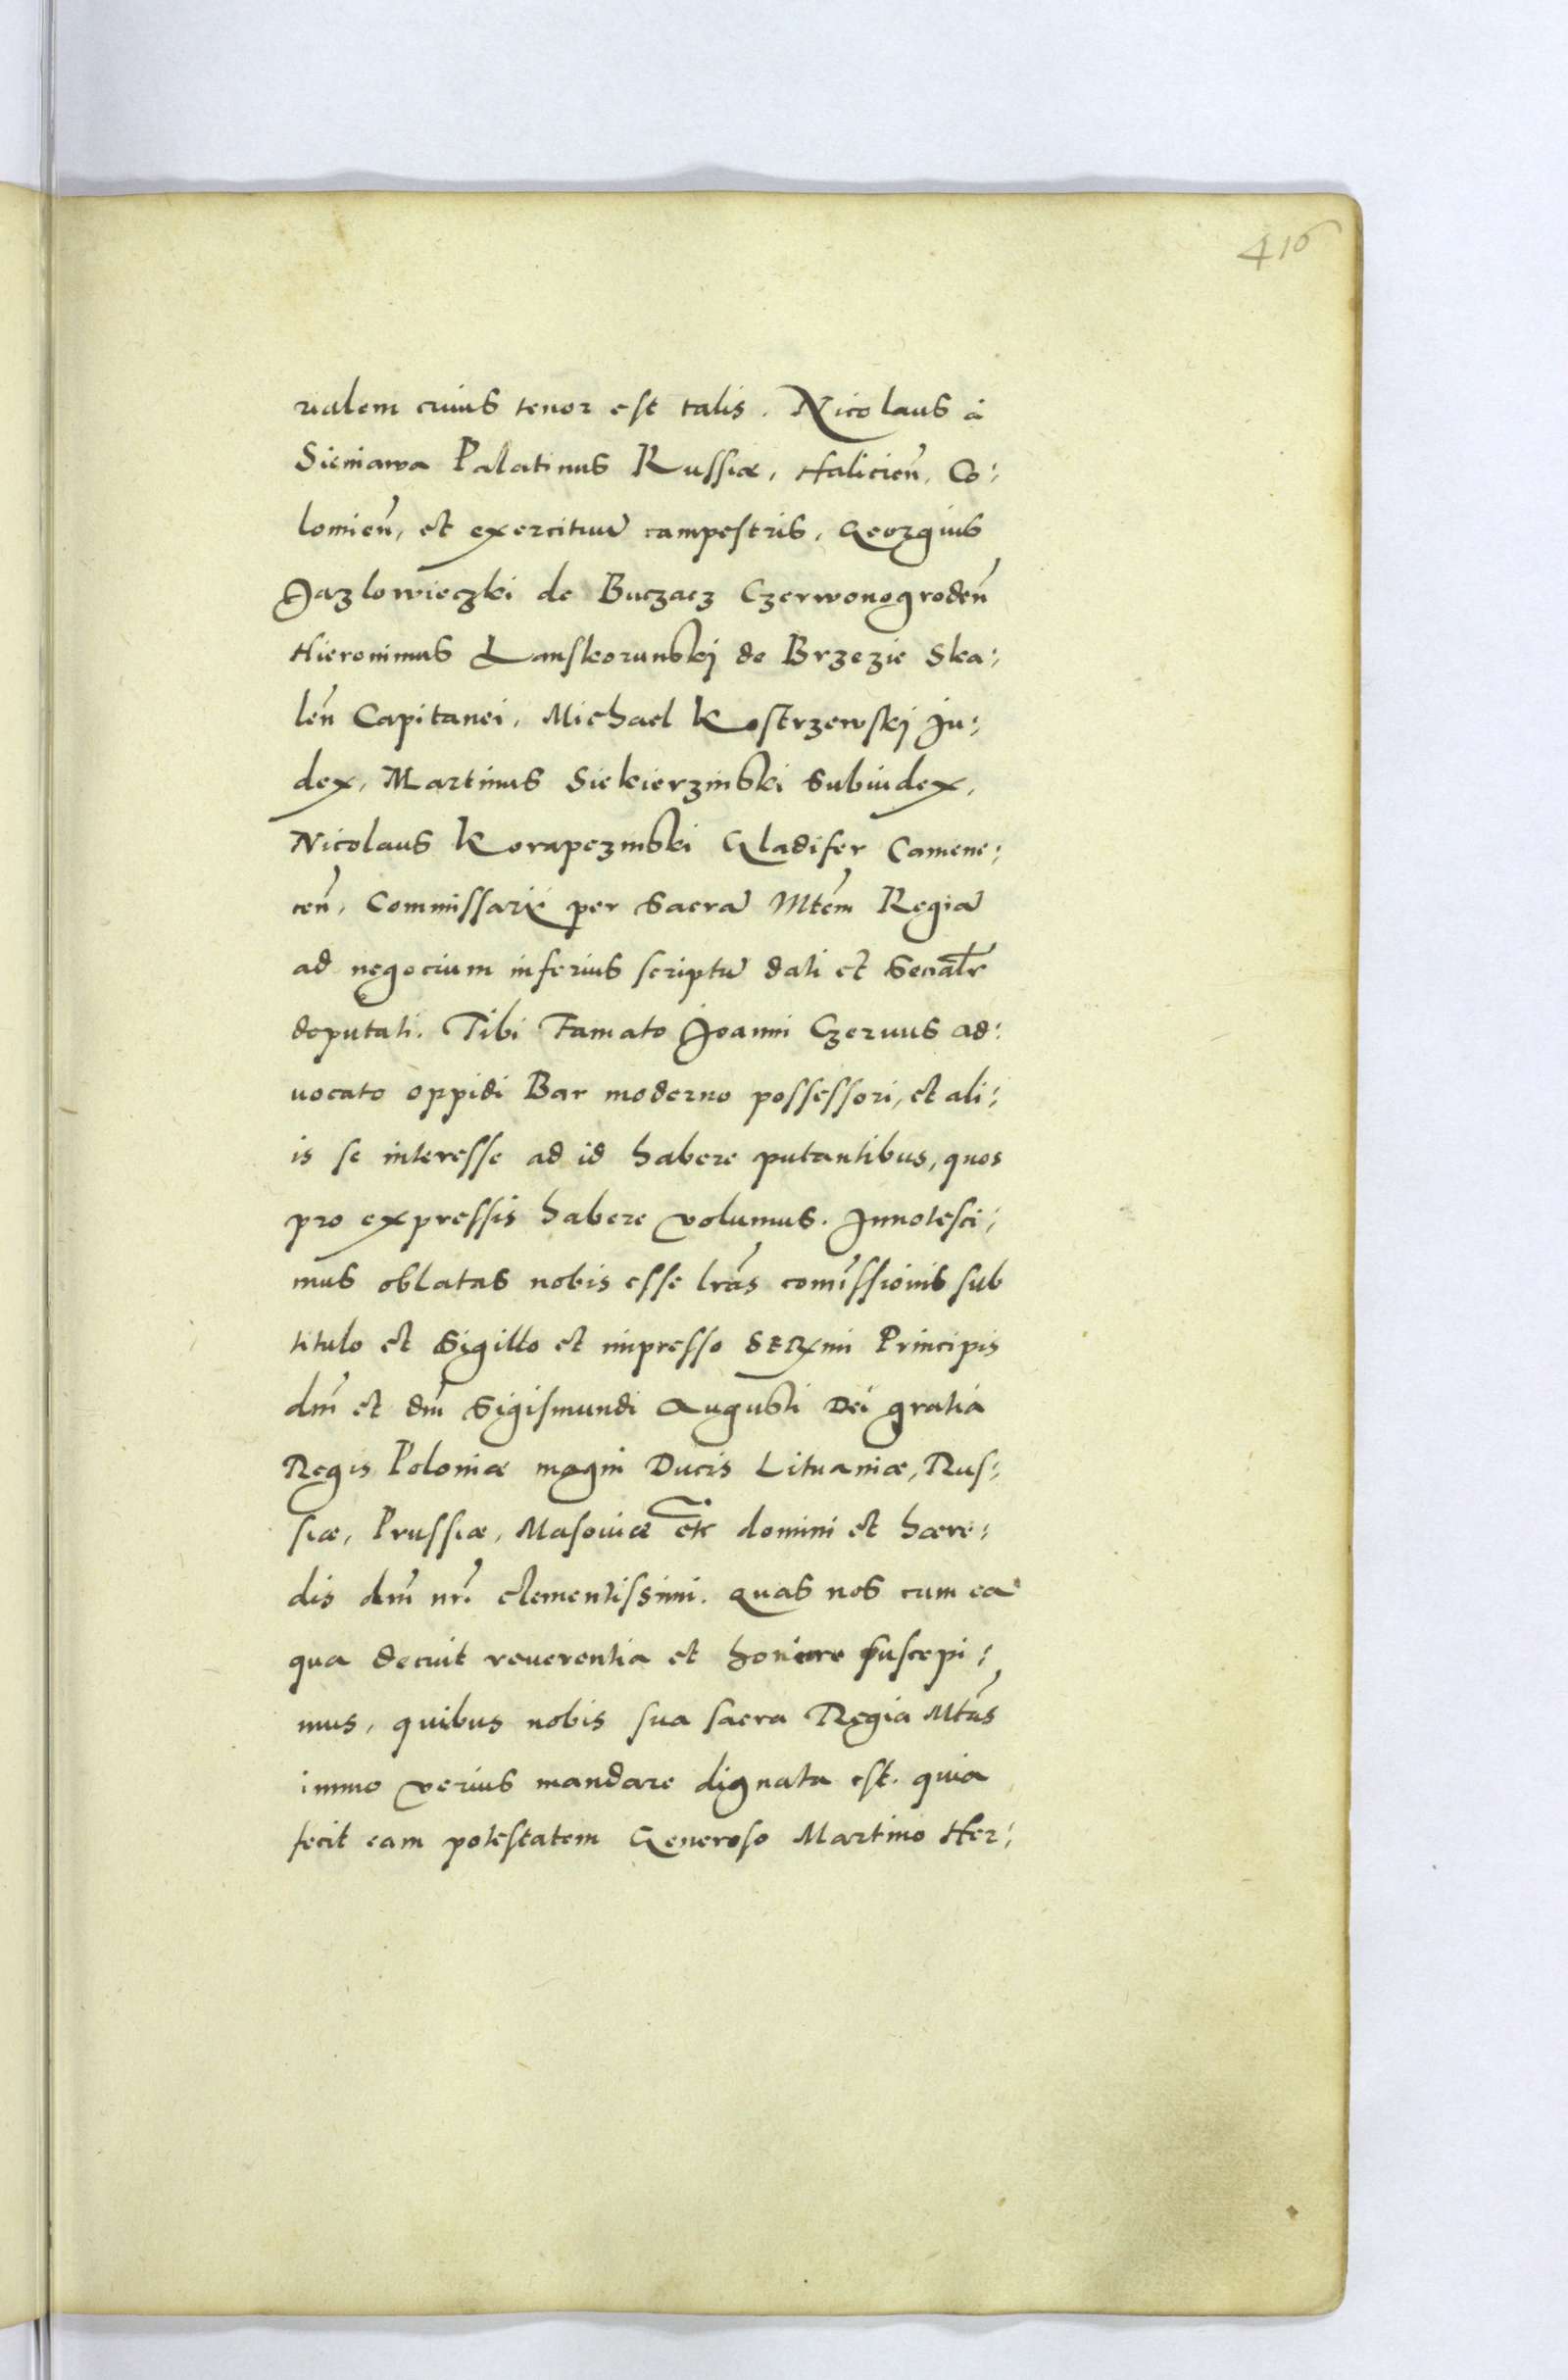 416
rialem cuius tenor est talis. Nicolaus à
Sieniawa Palatinus Russiæ, Halicien̄, Co:
lomien̄, et exercituū campestris, Georgius
Jazlowieczki de Buczacz Czerwonogroden̄
Hieronimus Lanskorunski de Brzezie Ska:
len̄ Capitanei, Michael Kostrzewskj Ju:
dex, Martinus Siekierzinski Subiudex,
Nicolaus Koropczinski Gladifer Camene:
cen̄, Commissarii per Sacrā Mtēm Regiā
ad negocium inferius scriptū dati et
deputati. Tibi Famato Joanni Czerwus ad:
uocato oppidi Bar moderno possessori, et ali:
is se interesse ad id habere putantibus, quos
pro expressis habere volumus. Innotesci:
mus oblatas nobis esse lrās comīssionis sub
titulo et Sigillo et impresso Serxmi Principis
dn̄i et dn̄i Sigismundi Augusti Dei gratia
Regis Poloniæ magni Ducis Lituaniæ, Rus:
siæ, Prussiæ, Masouiæ etc domini et hære:
dis dn̄i nr̄i clementissimi. quas nos cum ea
qua decuit reuerentia et honore suscepi:
mus, quibus nobis sua sacra Regia Mtās
immo verius mandare dignata est. quia
fecit eam potestatem Generoso Martino Her: